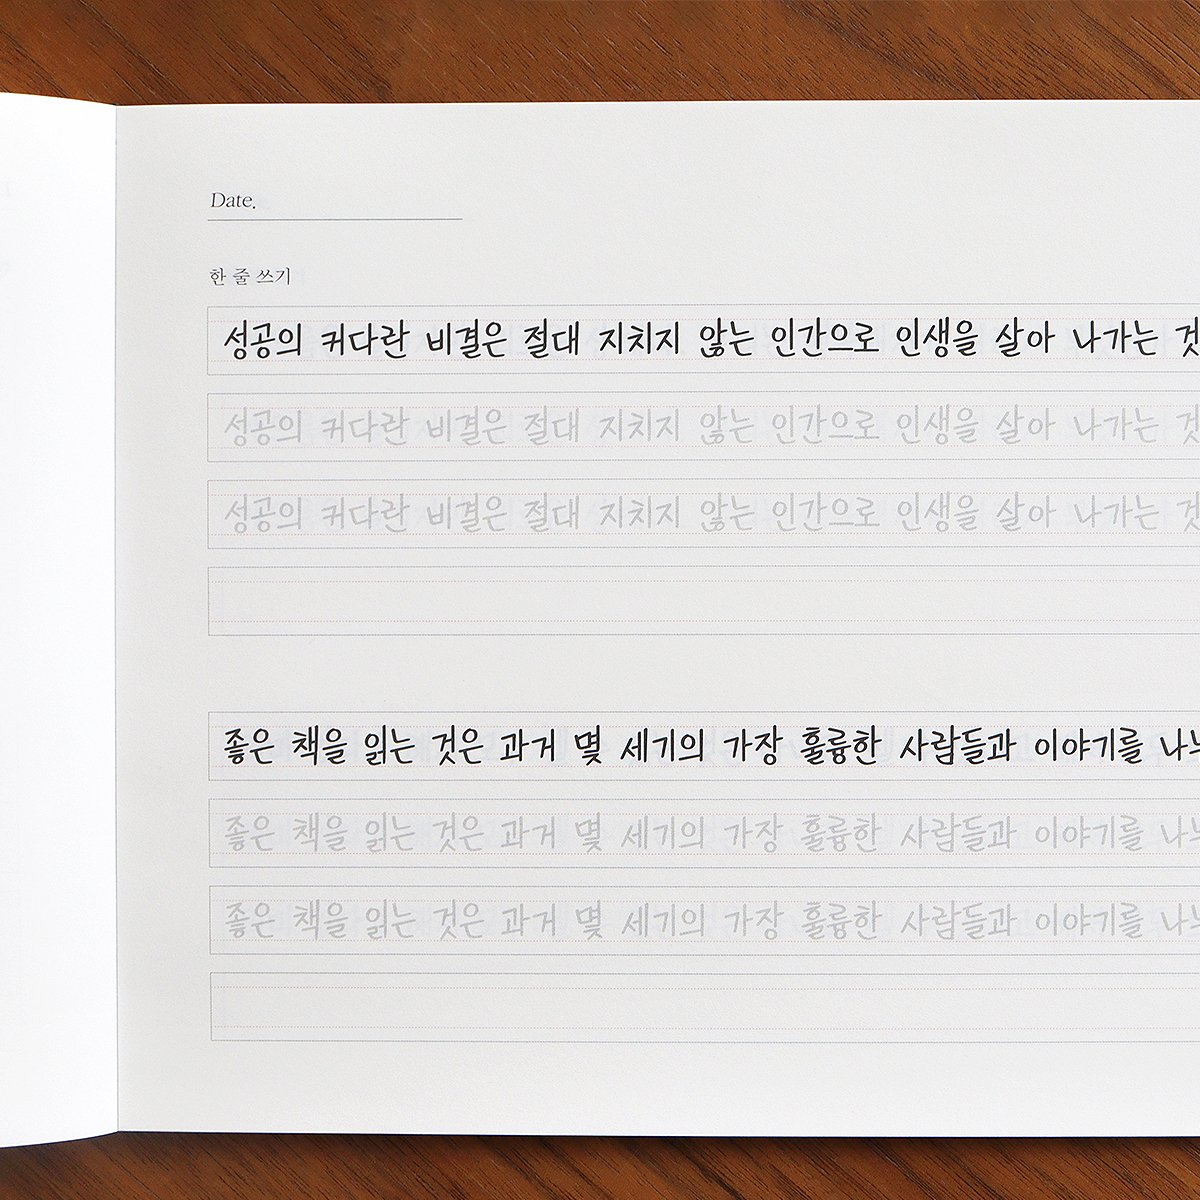 Date.
한 줄 쓰기
성공의 커다란 비결은 절대 지치지 않는 인간으로 인생을 살아 나가는 것
성공의 커다란 비결은 절대 지치지 않는 인간으로 인생을 살아 나가는 것
성공의 커다란 비결은 절대 지치지 않는 인간으로 인생을 살아 나가는 것
좋은 책을 읽는 것은 과거 몇 세기의 가장 훌륭한 사람들과 이야기를
좋은 책을 읽는 것은 과거 몇 세기의 가장 훌륭한 사람들과 이야기를
좋은 책을 읽는 것은 과거 몇 세기의 가장 훌륭한 사람들과 이야기를